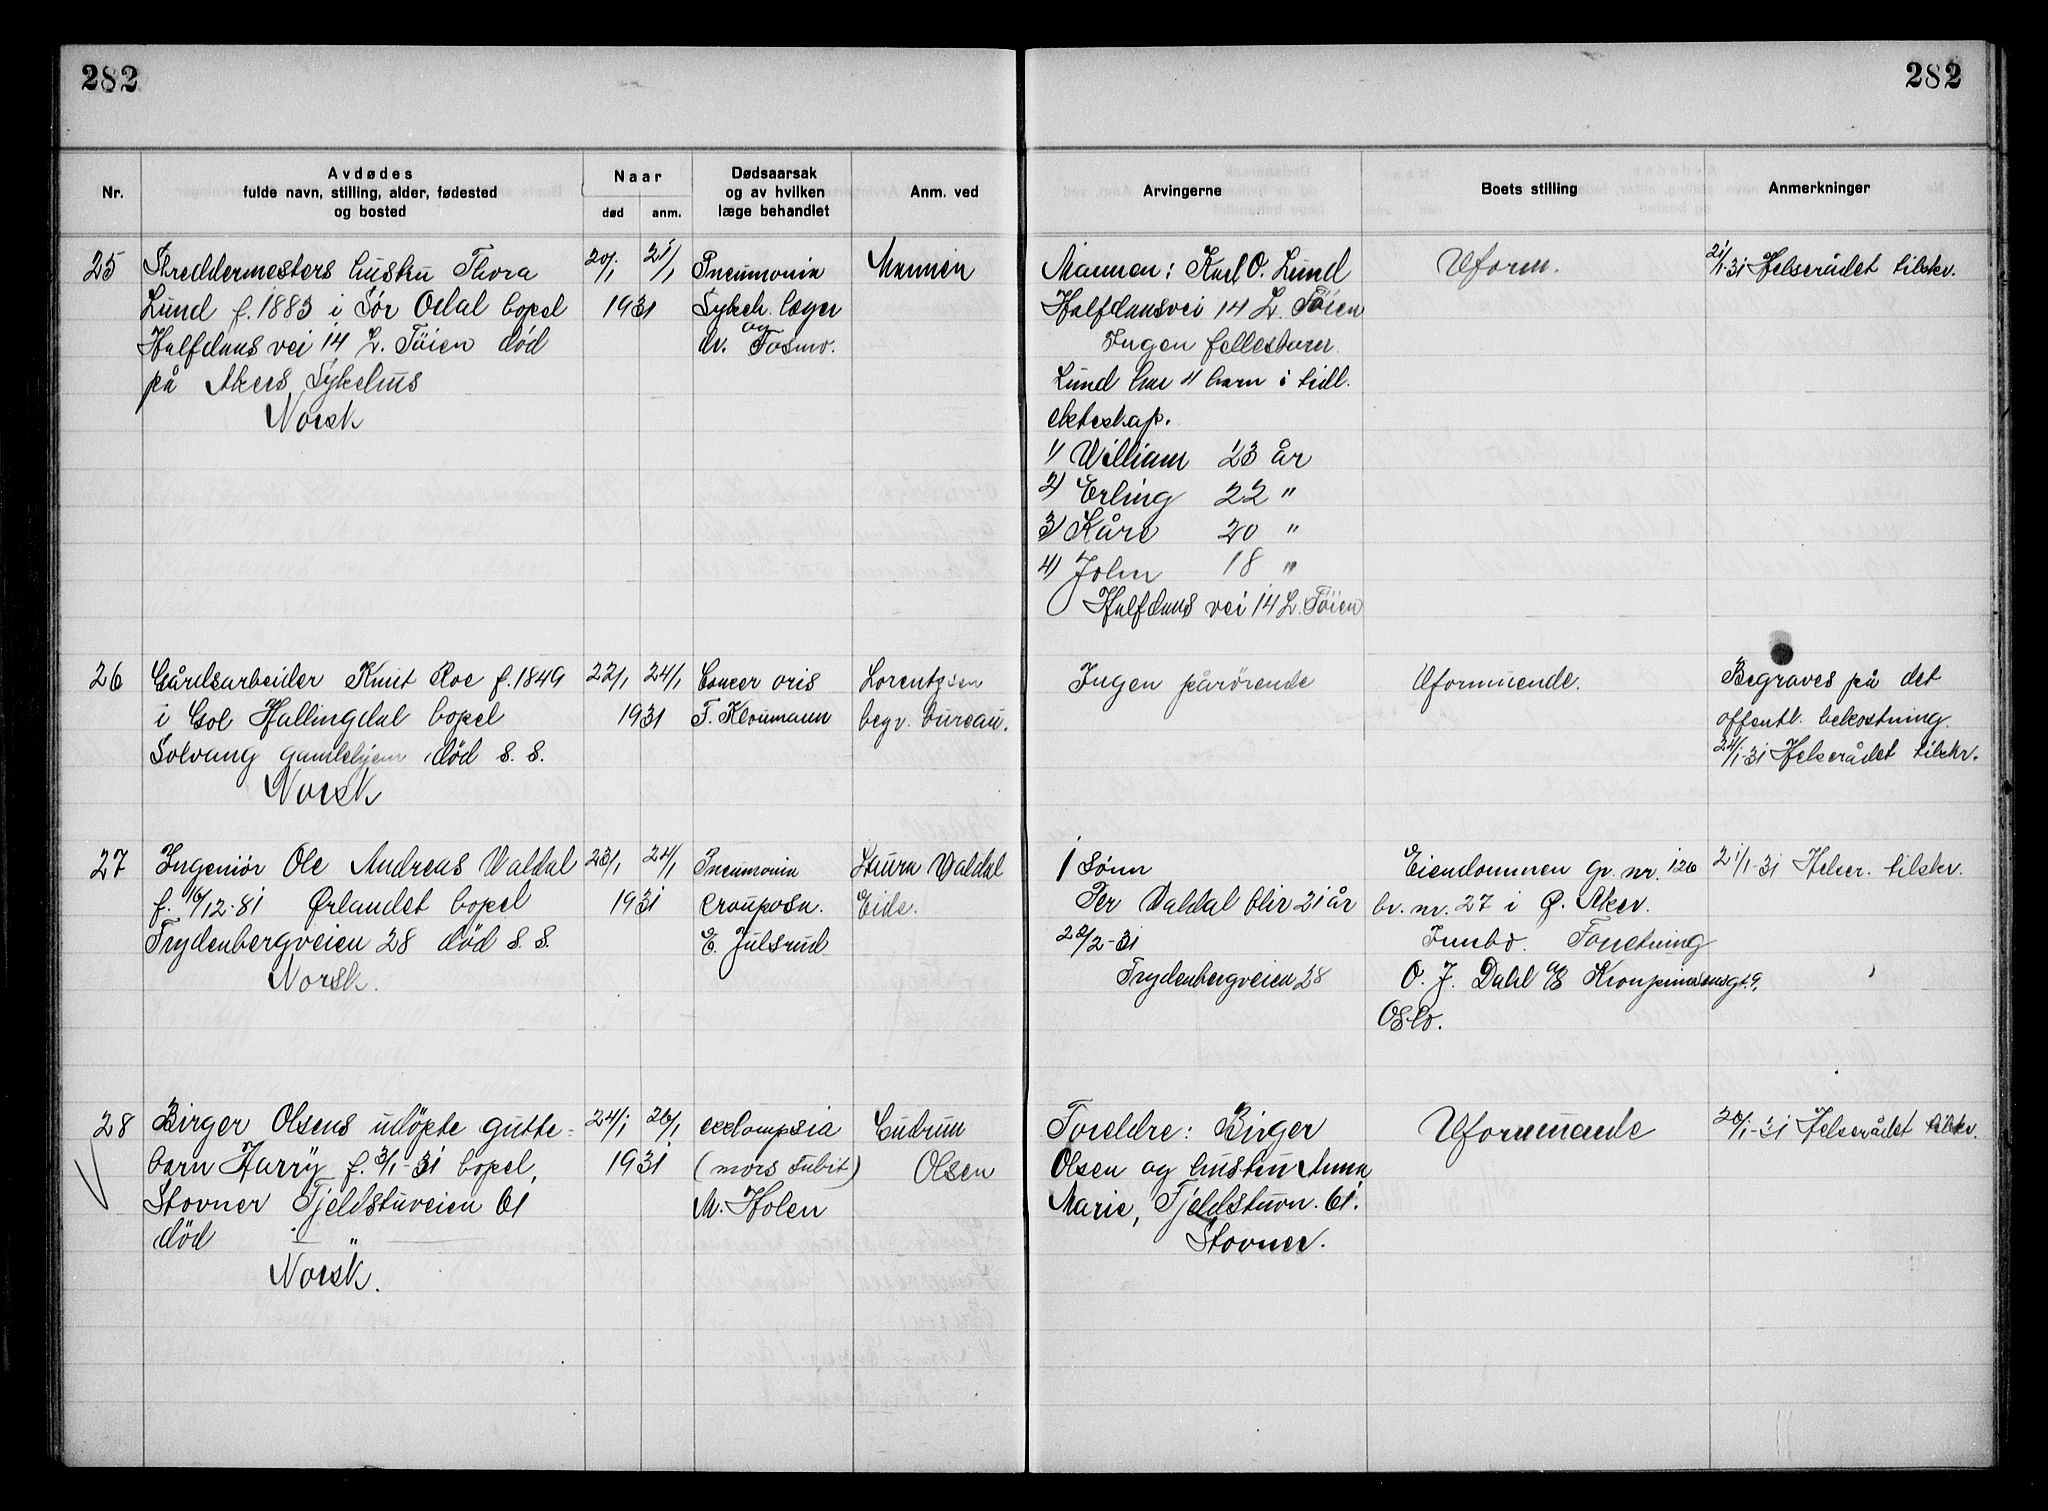 282
282
Nr.
Avdødes
fulde navn, stilling, alder, fødested
og bosted
Naar
død
anm.
Dødsaarsak
og av hvilken
læge behandlet
Anm. ved
Arvingerne
Boets stilling
Anmerkninger
25
Skreddermesters hustru Thora
Lund f. 1883 i Sør Odal bopel
Halfdans vei 14 L. Töien død
på Akers Sykehus
Norsk
20/1 21/1
1931
Pneumonia
Sykeh. læger
og
dr. Fosmo.
Mannen
Mannen: Karl O. Lund
Halfdansvei 14 L. Töien
Ingen fellesbarn.
Lund har 4 barn i tidl.
ekteskap.
1) William 23 år
2) Erling 22 "
3) Kåre 20 "
4) John 18 "
Halfdans vei 14 L. Töien
Uform.
21/1-31 Helserådet tilskr.
26
Gårdsarbeider Knut Roe f. 1849
i Gol Hallingdal bopel
Solvang gamlehjem død s. s.
Norsk
22/1 24/1
1931
Cancer oris
F. Kloumann
Lorentzen
begr. bureau.
Ingen pårørende
Uformuende.
Begraves på det
offentl. bekostning.
24/1-31 Helserådet tilskr.
27
Ingeniør Ole Andreas Valdal
f. 16/12-81 Ørlandet bopel
Frydenbergveien 28 død s. s.
Norsk.
23/1 24/1
1931
Pneumonia
crouposa.
E. Julsrud
Laura Valdal
Eide.
1 sønn
Per Valdal blir 21 år
22/2-31
Frydenbergveien 28
Eiendommen gr. nr. 126
br. nr. 27 i Ø. Aker.
Innbo. Forretning
O. J. Dahl A/S Kronprinsensgt. 9,
Oslo.
2 1/1-31 Helser. tilskr.
28
Birger Olsens udöpte gutte-
barn Harry f. 3/1-31 bopel,
Stovner Fjeldstuveien 61
død — " —
Norsk.
24/1 26/1
1931
ecclampsia
(mors subit)
M. Holen
Gudrun
Olsen
Foreldre: Birger
Olsen og hustru Anna
Marie, Fjeldstuvn. 61.
Stovner.
Uformuende
26/1-31 Helserådet tilskr.